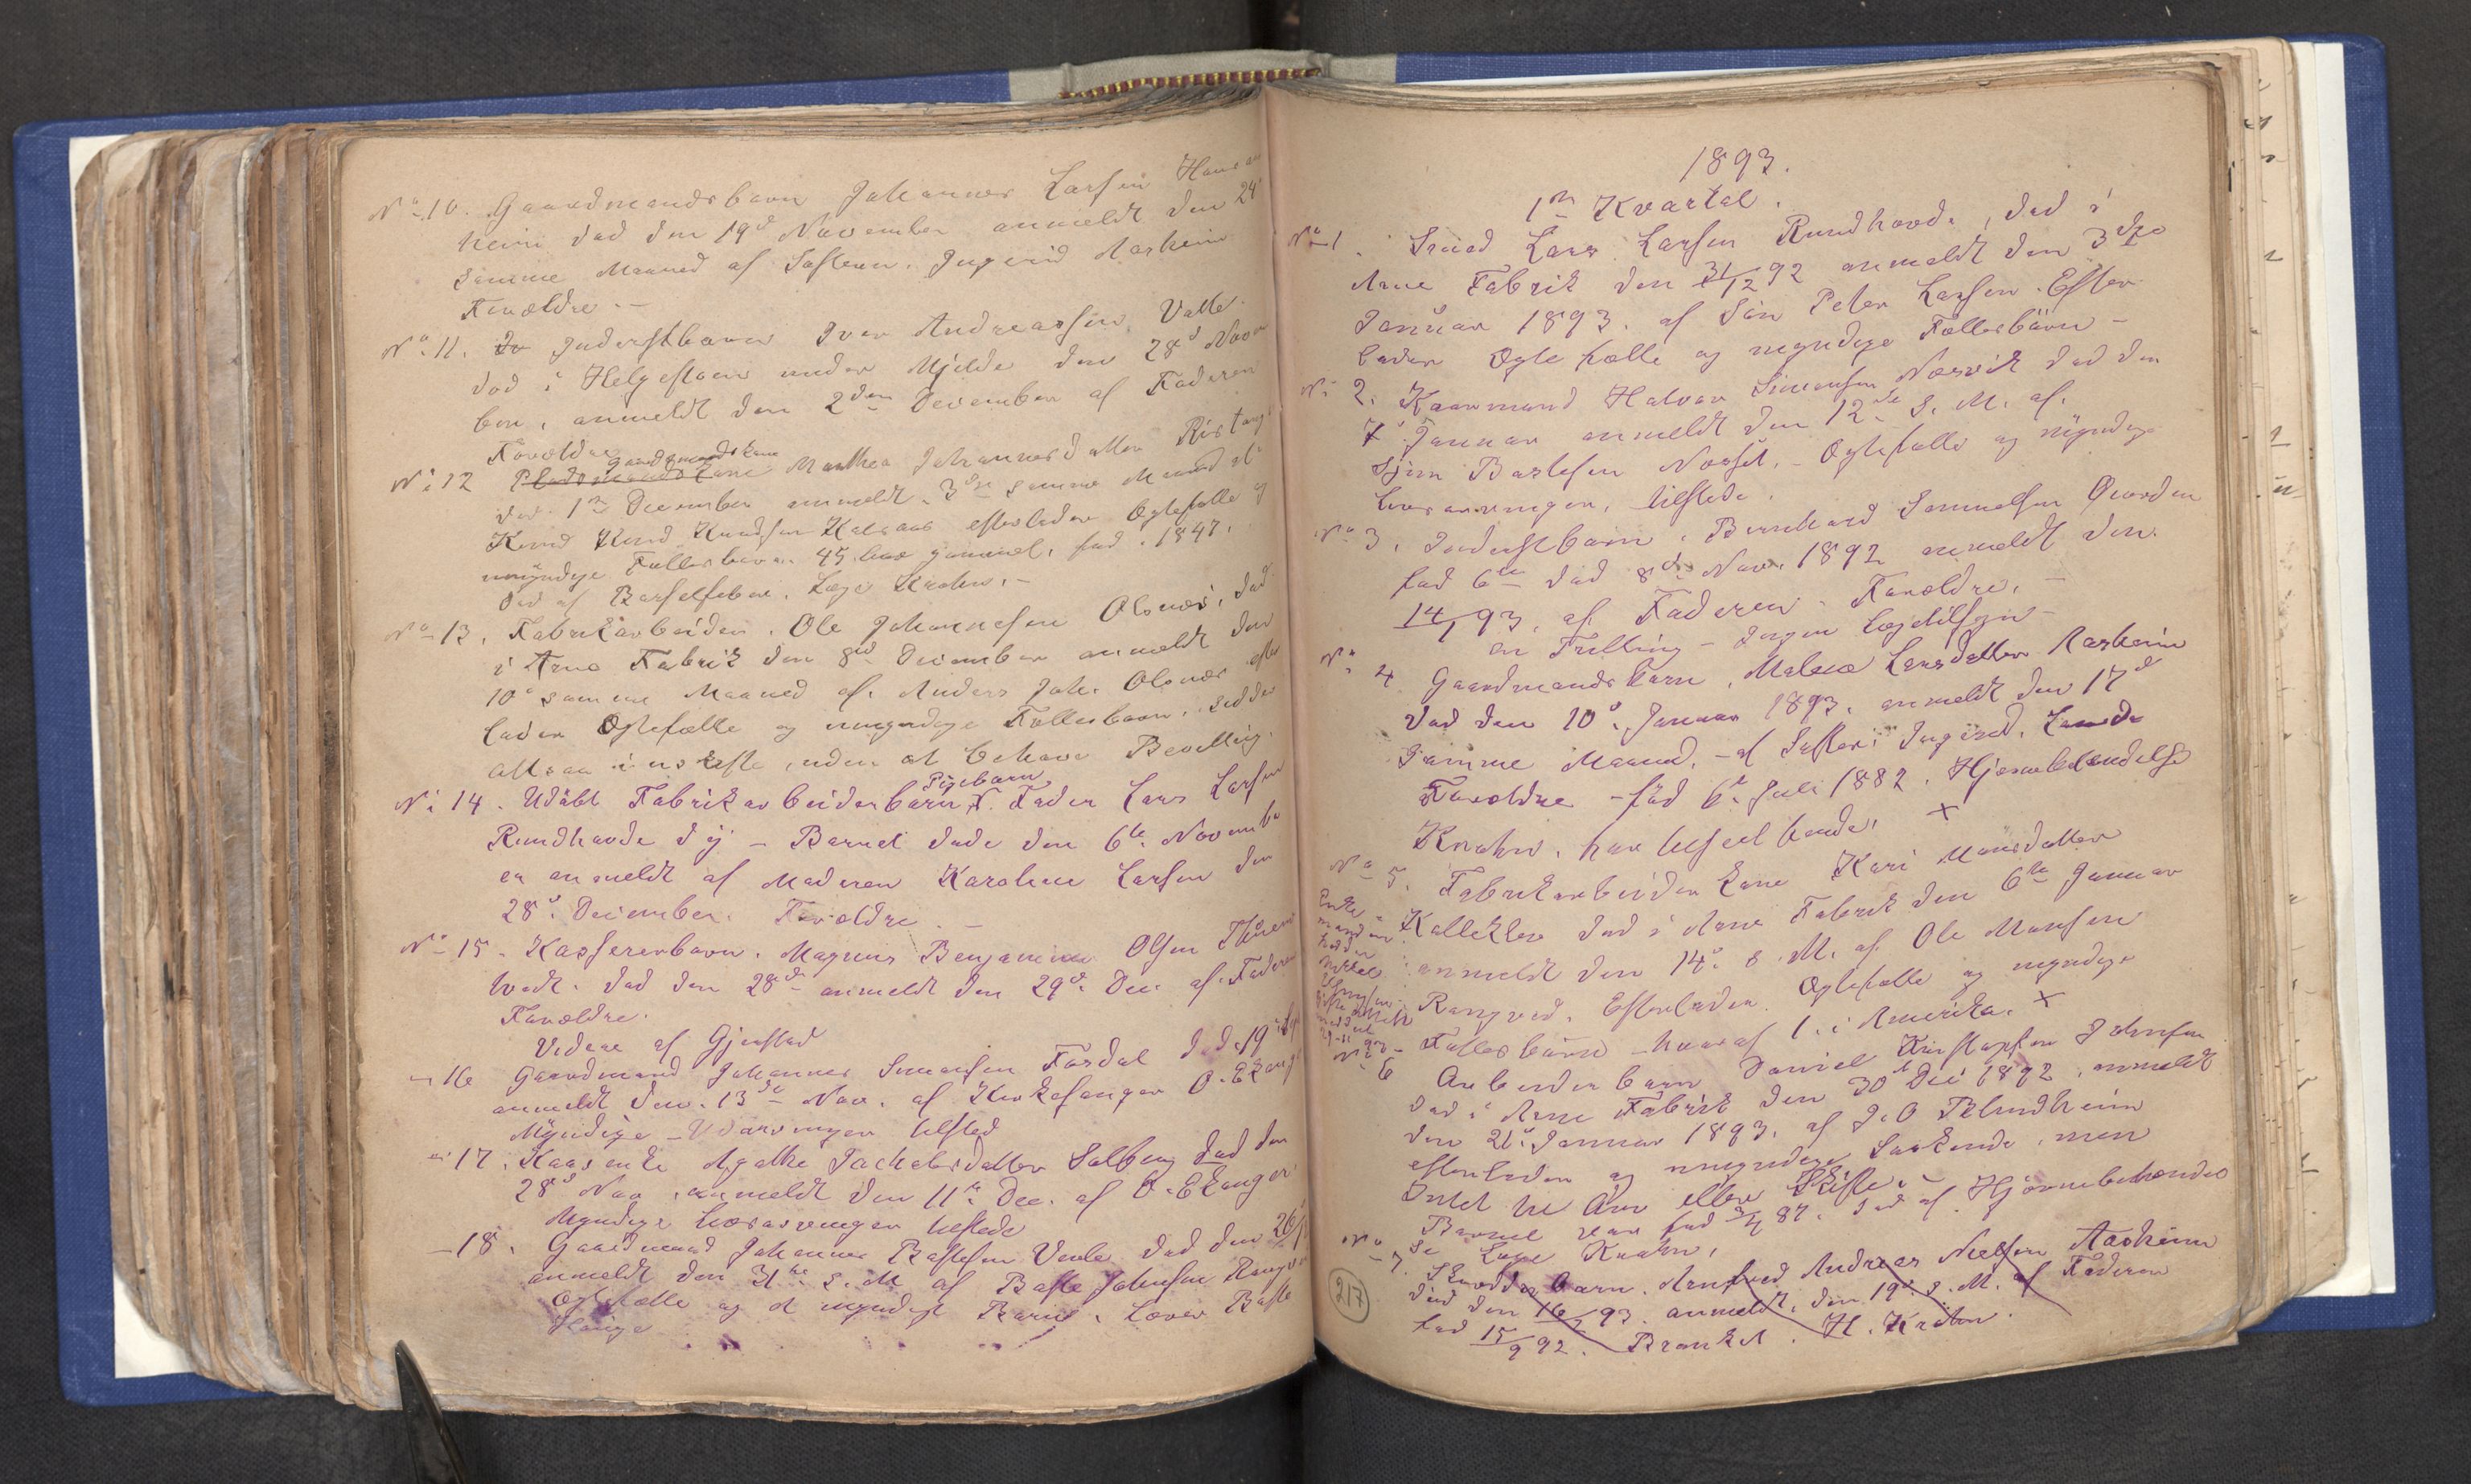 No 10. Gaardmandsbarn Johannes Larsen Haus
heim død den 19d November anmeldt den 24
samme Maaned af Søsteren Ingerid Aasheim
Forældre. —
No 11. Inderstbarn Iver Andreassen Valle
død i Helgestøen under Mjelde den 28d Novem
ber, anmeldt den 2den December af Faderen
Forældre
Gaardmandskone
No 12 Pladsmandskone Marthea Johannesdatter Ristang
død 1ste December anmeldt 3die samme Maaned af
Knud Knudsen efterlader Ægtefælle og
umyndige Fællesbørn. 45 Aar gammel, fød 1847.
Død af Barselfeber. Læge Krohn. —
No 13. Fabrikarbeider Ole Johannesen Olsnæs, død
i Arne Fabrik den 8de December anmeldt den
10d samme Maaned af Anders Joh. Olsnæs efter
lader Ægtefælle og umyndige Fællesbørn, sidder
altsaa i uskifte, uden at behøve Bevilling.
Pigebarn
No 14. Udøbt Fabrikarbeiderbarn N. Fader Lars Larsen
Rundhovde d y — Barnet døde den 6te November
er anmeldt af Moderen Karoline Larsen den
28d December. Forældre. —
No 15. Kassererbarn. Magnus Benjamin Olsen
tvedt. død den 28de anmeldt den 29d Dec. af Faderen
Forældre.
Videre af Gjerstad
— 16 Gaardmand Johannes Simonsen Fosdal død 19
anmeldt den 13de Nov. af Kirkesanger O. Ekanger
Myndige Udarvinger tilsted
— 17. Kaarenke Agathe Jachobsdatter Solberg død den
28d Nov. anmeldt den 11te Dec. af O. Ekanger
Myndige Livsarvinger tilstede
— 18. Gaardmand Johannes Bastesen Veule død den 26
anmeldt den 31te s. M. af Baste Johnsen
Ægtefælle og et myndigt Barn. Lover Baste
Hauge
1893.
1ste Kvartal.
No 1. Smed Lars Larsen Rundhovde, død i
Arne Fabrik den 31/12 92 anmeldt den 3die
Januar 1893. af Søn Peter Larsen. Efter
lader Ægtefælle og myndige Fællesbørn —
No 2. Kaarmand Halvor Simonsen Næsvik død den
7d Januar anmeldt den 12te s. M. af.
Bastesen — Ægtefælle og myndige
Livsarvinger, tilstede.
No 3. Inderstbarn. Bernhard Samuelsen
fød 6te død 8de Nov. 1892 anmeldt den
14/1 93, af Faderen. Forældre. —
en Trilling — Ingen Lægetilsyn —
No 4 Gaardmandsbarn, Malene Larsdatter Aasheim
død den 10d Januar 1893, anmeldt den 17d
samme Maaned, — af Søster Ingerid.
Forældre — fød 6te Juli 1882. Hjernebetændelse
Krohn, har tilseet hende. +
No 5. Fabrikarbeider Kone Kari Monsdatter
Kalleklev død i Arne Fabrik den 6te Januar
anmeldt den 14d s. M. af Ole Monsen
Rangved. Efterlader Ægtefælle og myndige
Fællesbørn — hvoraf 1. i Amerika. +
Enke
mand
No 6 Arbeiderbarn Daniel Kristoffer Johnsen
død i Arne Fabrik den 30d Dec 1892, anmeldt
den 21d Januar 1893. af J. O. Blindheim
efterlader og umyndige Søskende, men
Intet til Arv eller Skifte. —
Barnet var fød 3/4 87. død af Hjernebetændel
se Læge Krohn,
No 7. Skredderbarn. Arnfred Andreas Nielsen Aasheim
død den 16/2 93. anmeldt, den 19d s. M. af Faderen
fød 15/9 92. Bronkit. H. Krohn.
217